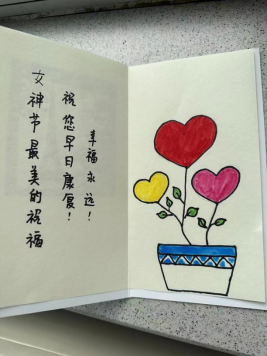 女神节最美的祝福
祝您早日康复！
幸福永远！